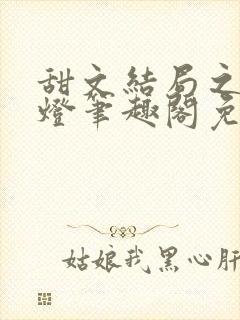 甜文結局之
燈筆趣閣免
姑娘我黑心肝